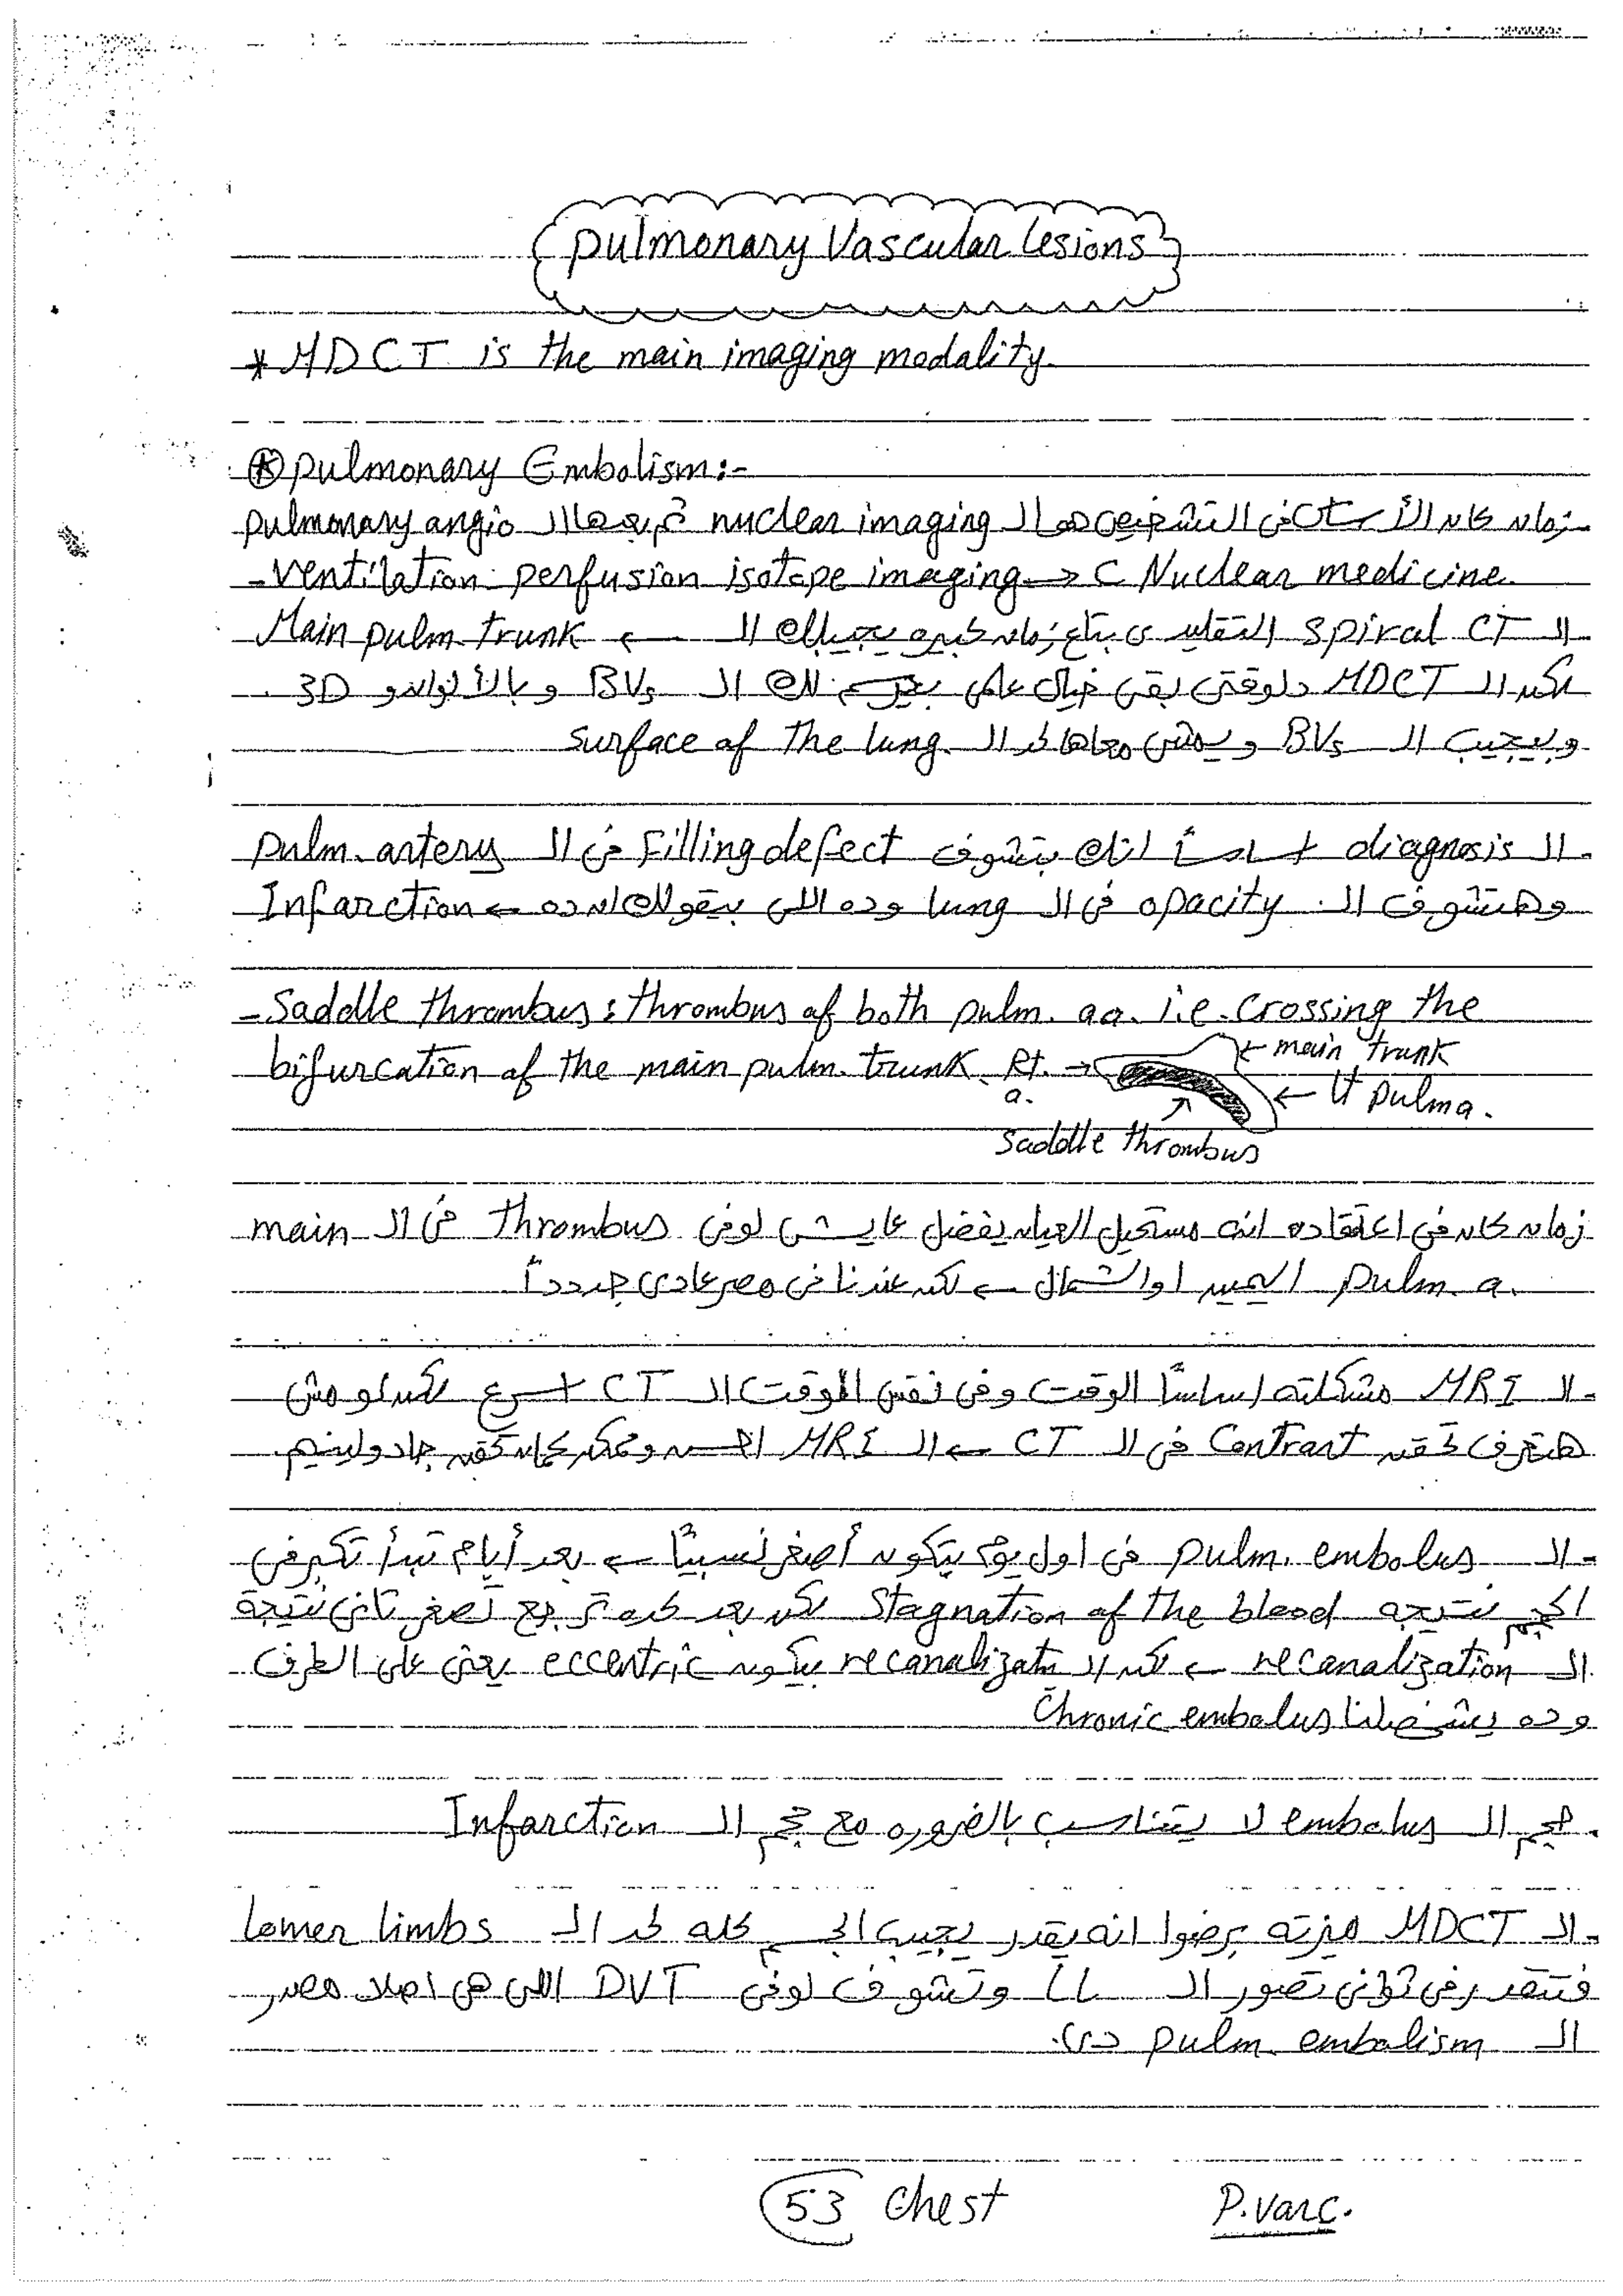 Pulmonary Vascular lesions
* MDCT is the main imaging modality.
⊛ pulmonary Embolism:-
- زمان كان الأساس فى التشخيص هو الـ nuclear imaging ثم بعدها الـ pulmonary angio
- Ventilation perfusion isotope imaging → C Nuclear medicine.
- الـ spiral CT التقليدى بتاع زمان كبيره يجيبلك الـ ← Main pulm. trunk
لكن الـ MDCT دلوقتى بقى خيال علمى بيرسم لك الـ BVs وبالألوان و 3D
وبيجيب الـ BVs ويمشى معاها لحد الـ surface of the lung.
- الـ diagnosis أساساً انك بتشوف Filling defect فى الـ pulm. artery
وهتشوف الـ opacity فى الـ lung وده اللى بيقولك ان ده ← Infarction
- Saddle thrombus : thrombus of both pulm. aa. i.e. crossing the
bifurcation of the main pulm. trunk.
Rt. a. →
← main trunk
← Lt pulm a.
Saddle thrombus
زمان كان فى اعتقاد انه مستحيل العيان يفضل عايش لو فى thrombus فى الـ main
pulm. a. اليمين او الشمال ← لكن عندنا فى مصر عادى جدداً
- الـ MRI مشكلته اساساً الوقت وفى نفس الوقت الـ CT اسرع لكن لو مش
هتعرف تحقن Contrast فى الـ CT ← الـ MRI احسن وممكن كمان تحقن جادولينيم
- الـ pulm. embolus فى اول يوم بتكون أصغر نسبيًا ← بعد أيام تبدأ تكبر فى
الحجم نتيجه Stagnation of the blood لكن بعد كده ترجع تصغر تانى نتيجة
الـ recanalization ← لكن الـ recanalizatṇ بيكون eccentric يعنى على الطرف
وده يشخصلنا Chronic embolus
- حجم الـ embolus لا يتناسب بالضروره مع حجم الـ Infarction
- الـ MDCT ميزته برضوا انه يقدر يجيب الجسم كله لحد الـ lower limbs
فتقدر فى ثوانى تصور الـ LL وتشوف لو فى DVT اللى هى اصلا مصدر
الـ pulm. embolism دى.
53 Chest P.varc.